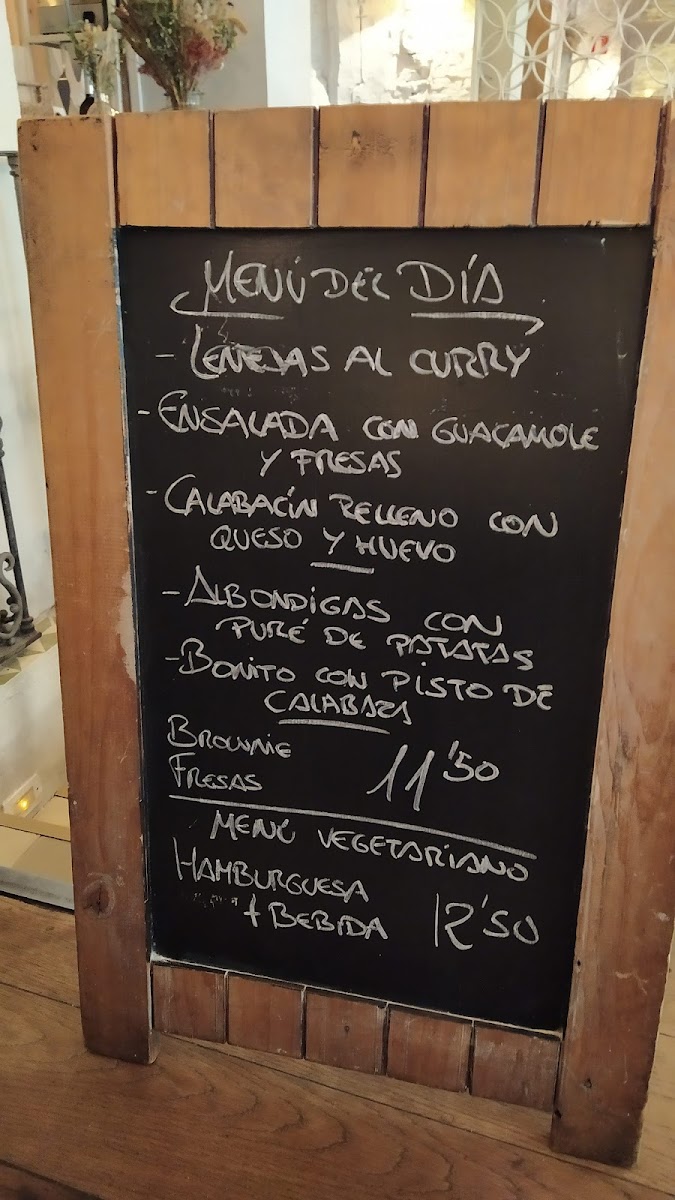 MENÚ DEL DÍA
- LENEJAS AL CURRY
- ENSALADA CON GUACAMOLE
Y FRESAS
- CALABACÍN RELLENO CON
QUESO Y HUEVO
- ALBONDIGAS CON
PURÉ DE PATATAS
- BONITO CON PISTO DE
CALABAZA
BROWNIE
FRESAS 11'50
MENÚ VEGETARIANO
HAMBURGUESA
+ BEBIDA 12'50